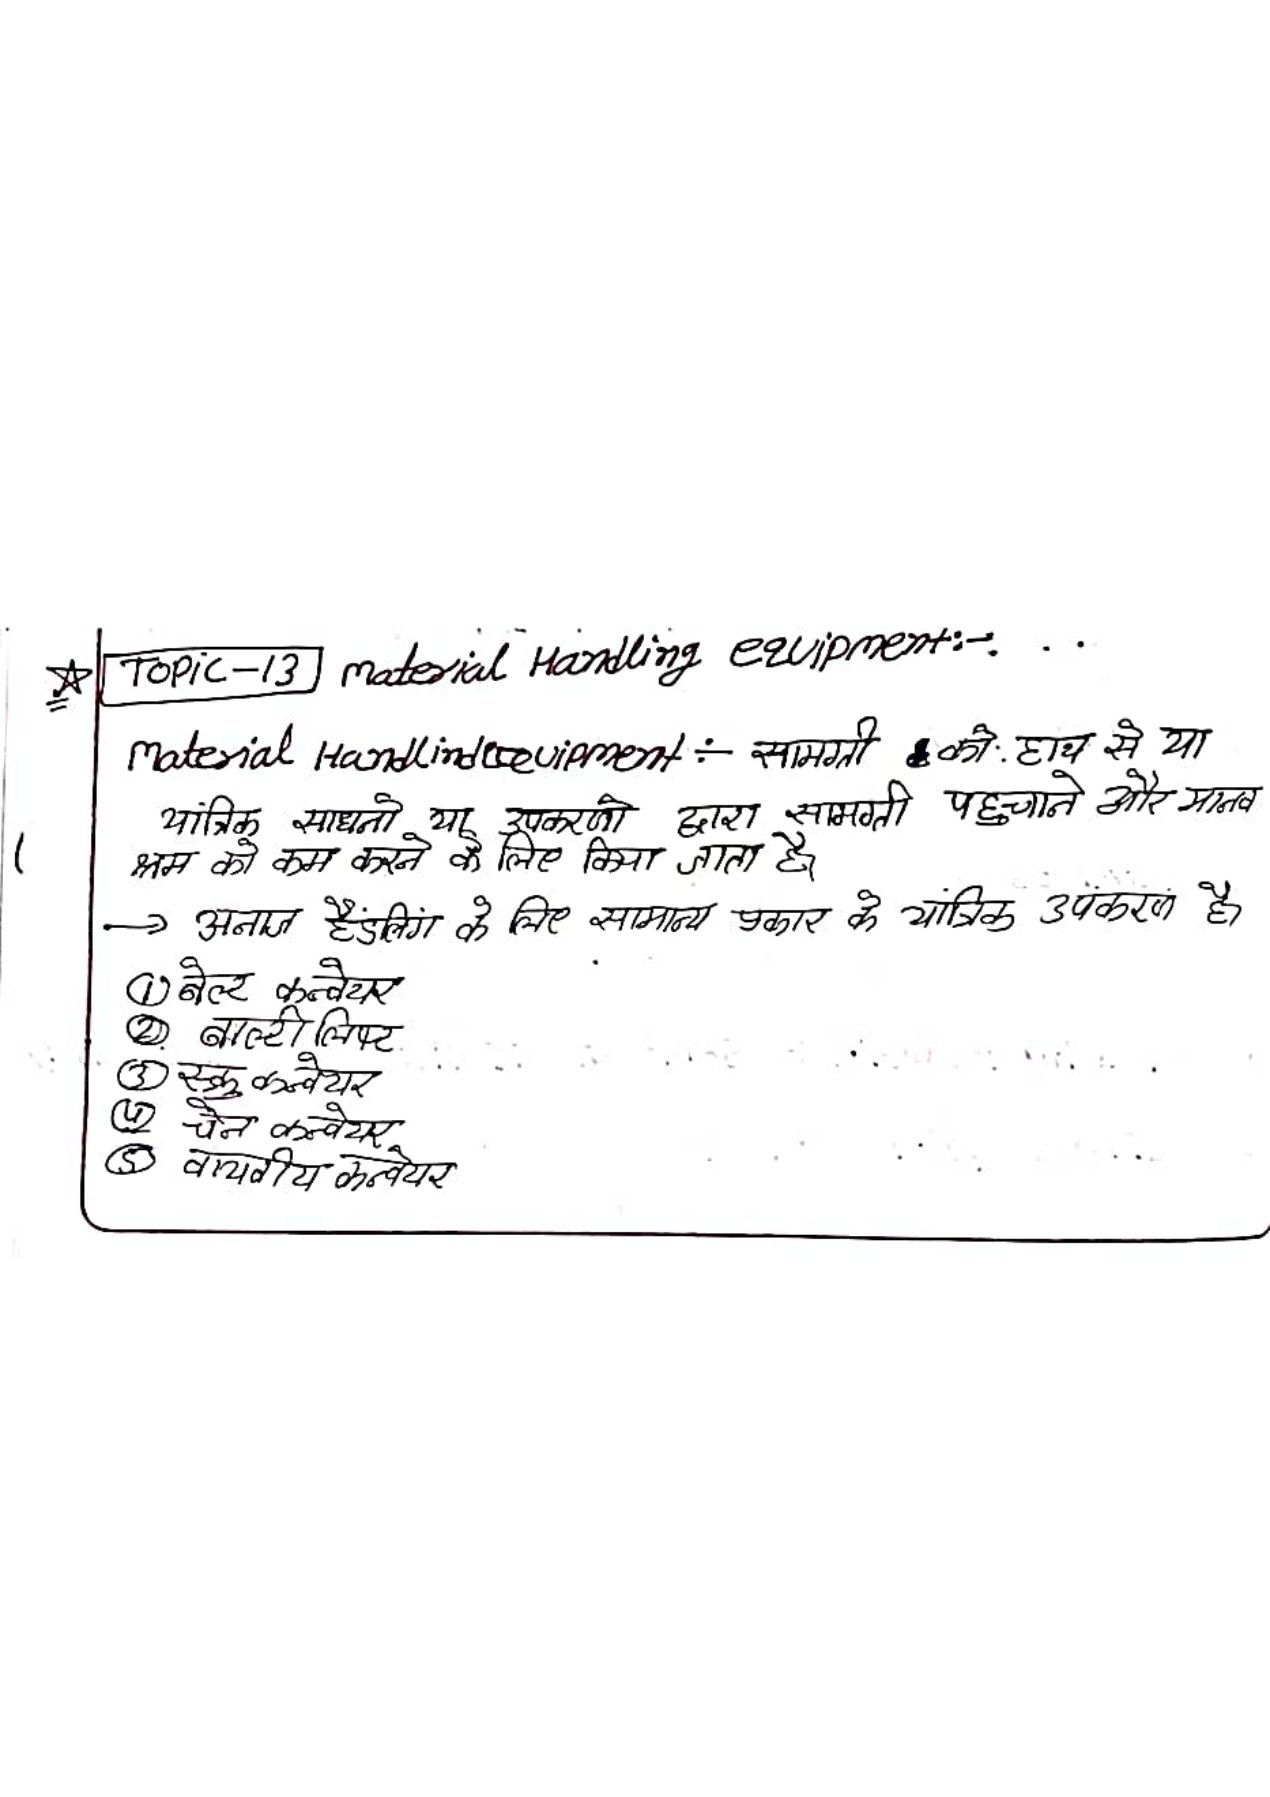 TOPIC-13 Material Handling equipment:-
Material Handlind equipment ÷ सामग्री को हाथ से या
यांत्रिक साधनो या उपकरणो द्वारा सामग्री पहुचाने और मानव
श्रम को कम करने के लिए किया जाता है।
→ अनाज हैंडलिंग के लिए सामान्य प्रकार के यांत्रिक उपकरण है।
① बेल्ट कन्वेयर
② बाल्टी लिफ्ट
③ स्क्रु कन्वेयर
④ चेन कन्वेयर
⑤ वायवीय कन्वेयर